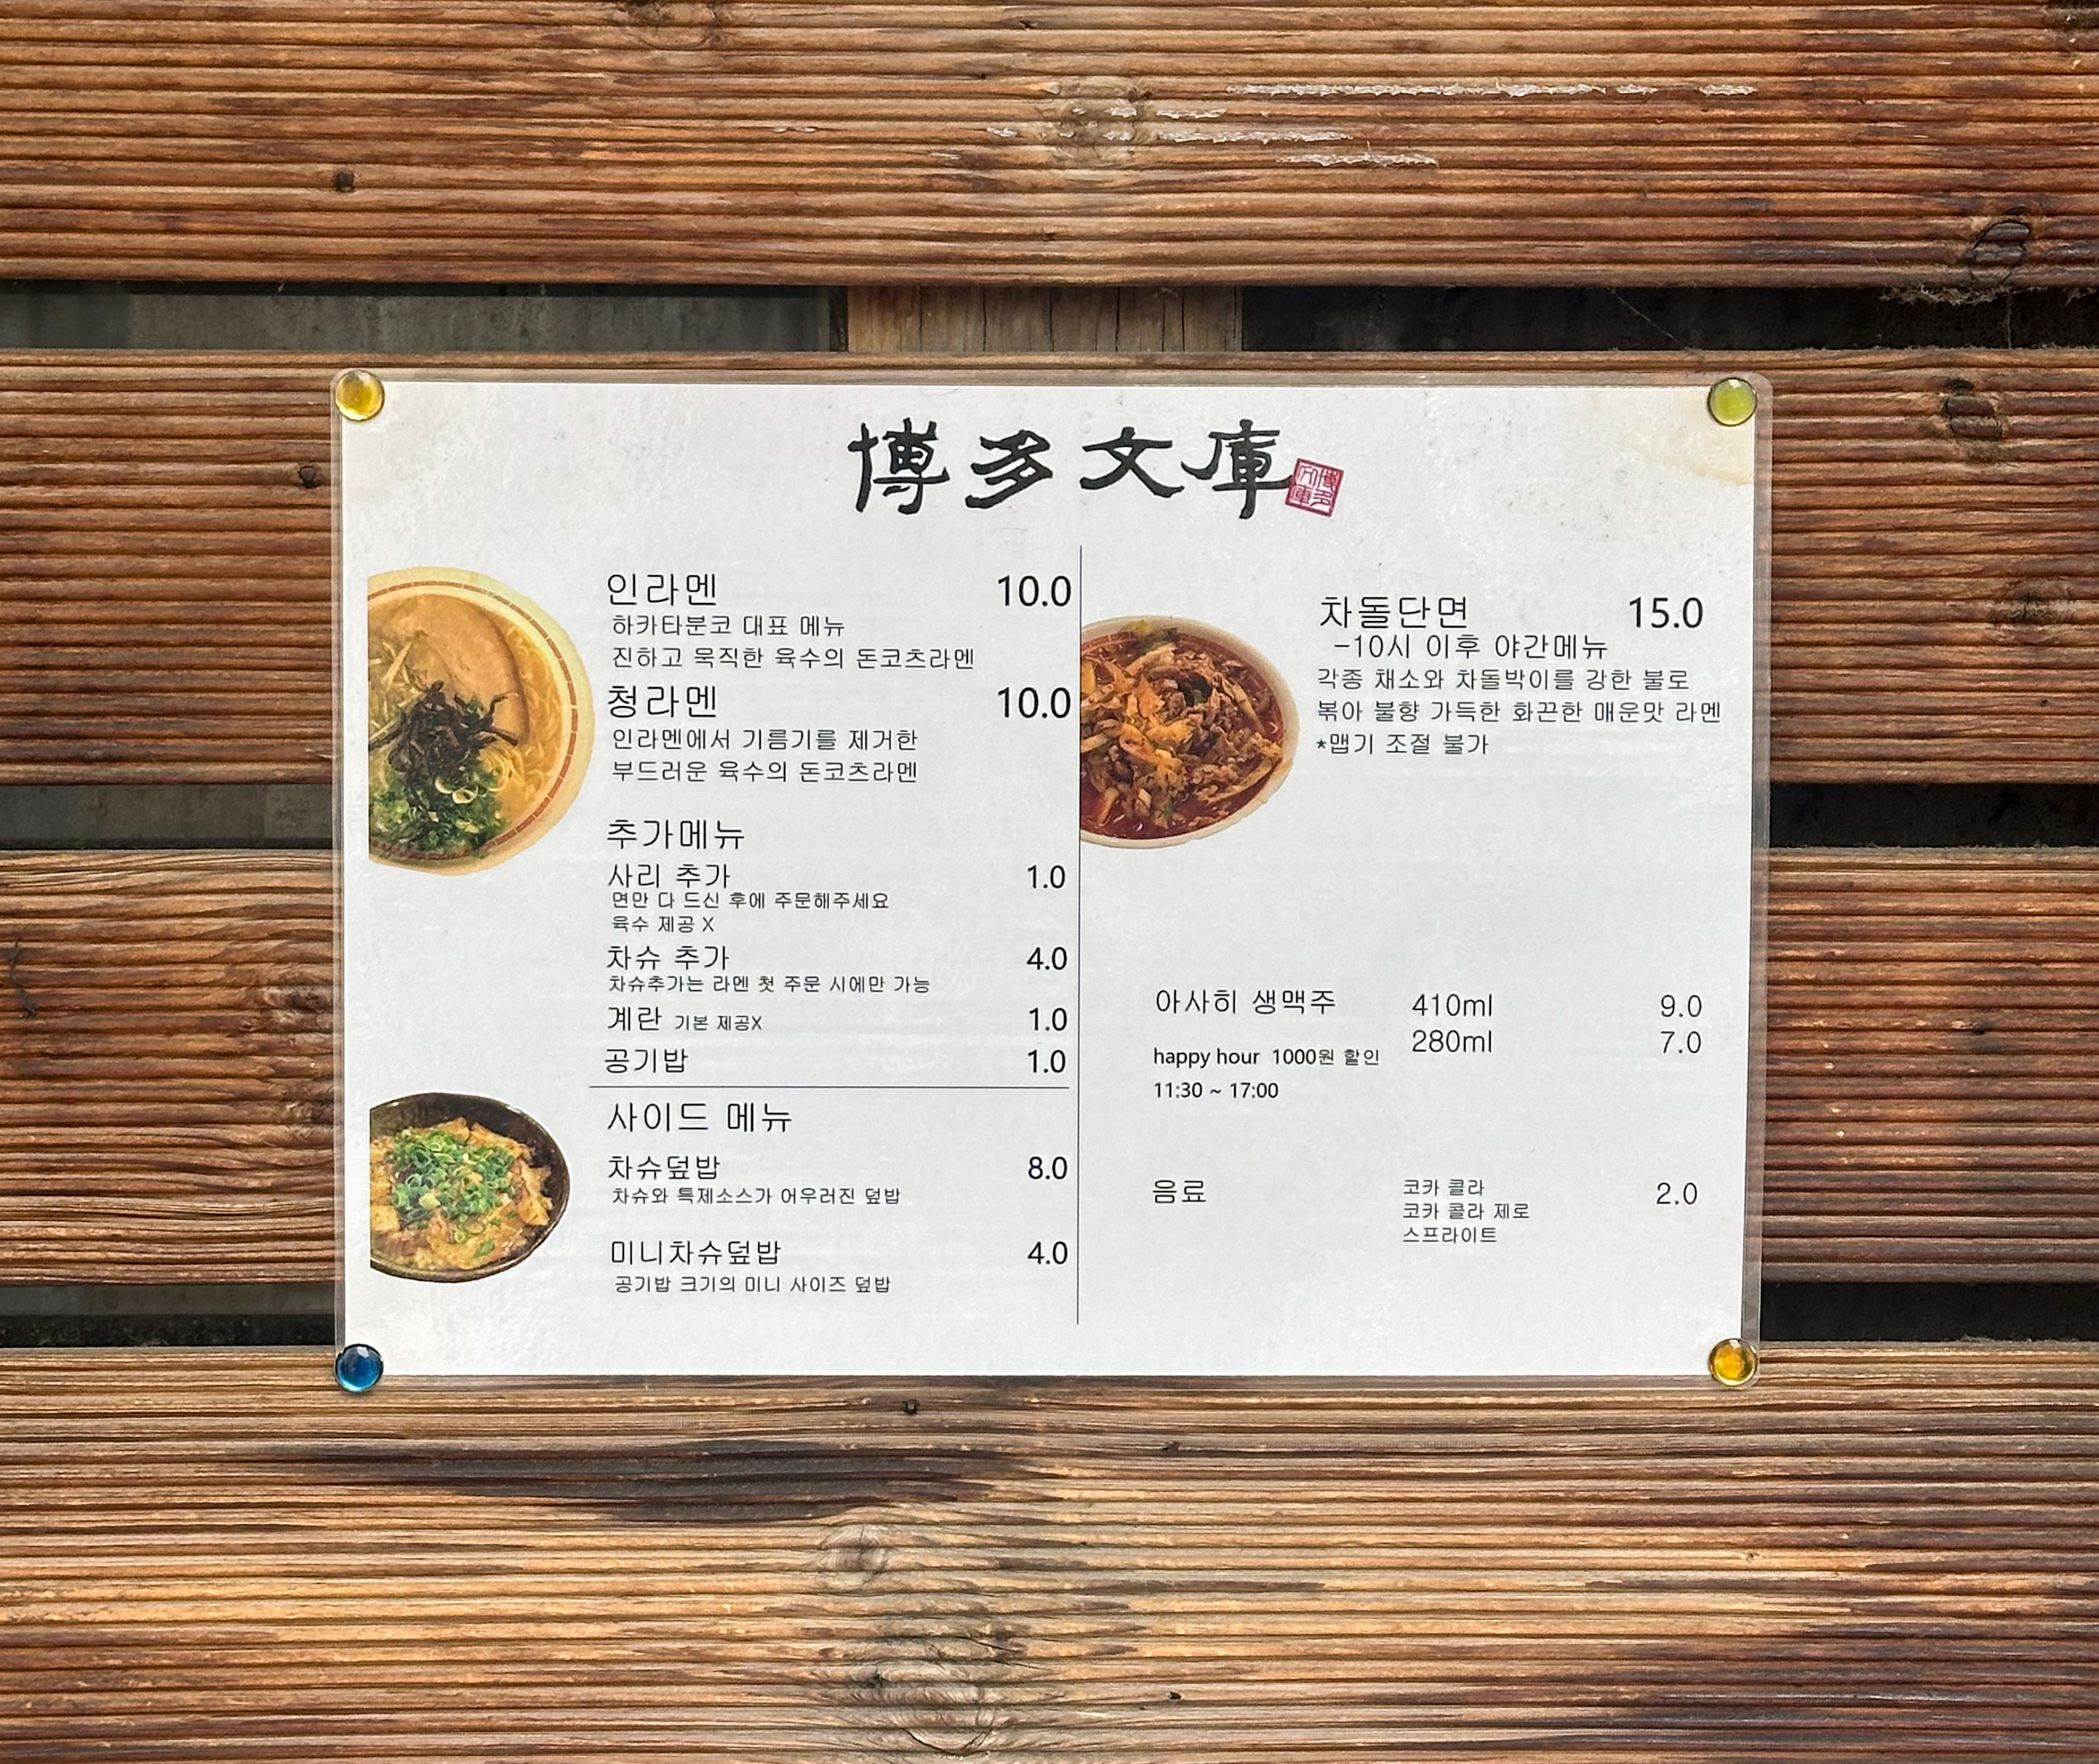 博多文庫
博多文庫
인라멘 10.0
하카타분코 대표 메뉴
진하고 묵직한 육수의 돈코츠라멘
청라멘 10.0
인라멘에서 기름기를 제거한
부드러운 육수의 돈코츠라멘
추가메뉴
사리 추가 1.0
면만 다 드신 후에 주문해주세요
육수 제공 X
차슈 추가 4.0
차슈추가는 라멘 첫 주문 시에만 가능
계란 기본 제공X 1.0
공기밥 1.0
사이드 메뉴
차슈덮밥 8.0
차슈와 특제소스가 어우러진 덮밥
미니차슈덮밥 4.0
공기밥 크기의 미니 사이즈 덮밥
차돌단면 15.0
-10시 이후 야간메뉴
각종 채소와 차돌박이를 강한 불로
볶아 불향 가득한 화끈한 매운맛 라멘
*맵기 조절 불가
아사히 생맥주 410ml 9.0
280ml 7.0
happy hour 1000원 할인
11:30 ~ 17:00
음료 코카 콜라 2.0
코카 콜라 제로
스프라이트